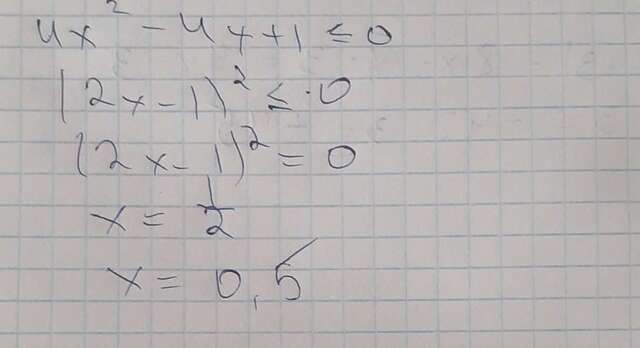 4x² - 4x+1 ≤ 0
(2x-1)² ≤ 0
(2x-1)² = 0
x = 1/2
x = 0,5